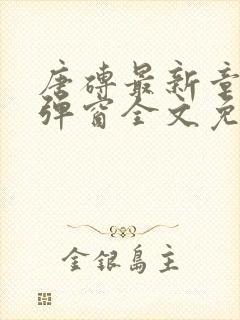 唐砖最新章
弹窗全文免
金银岛主